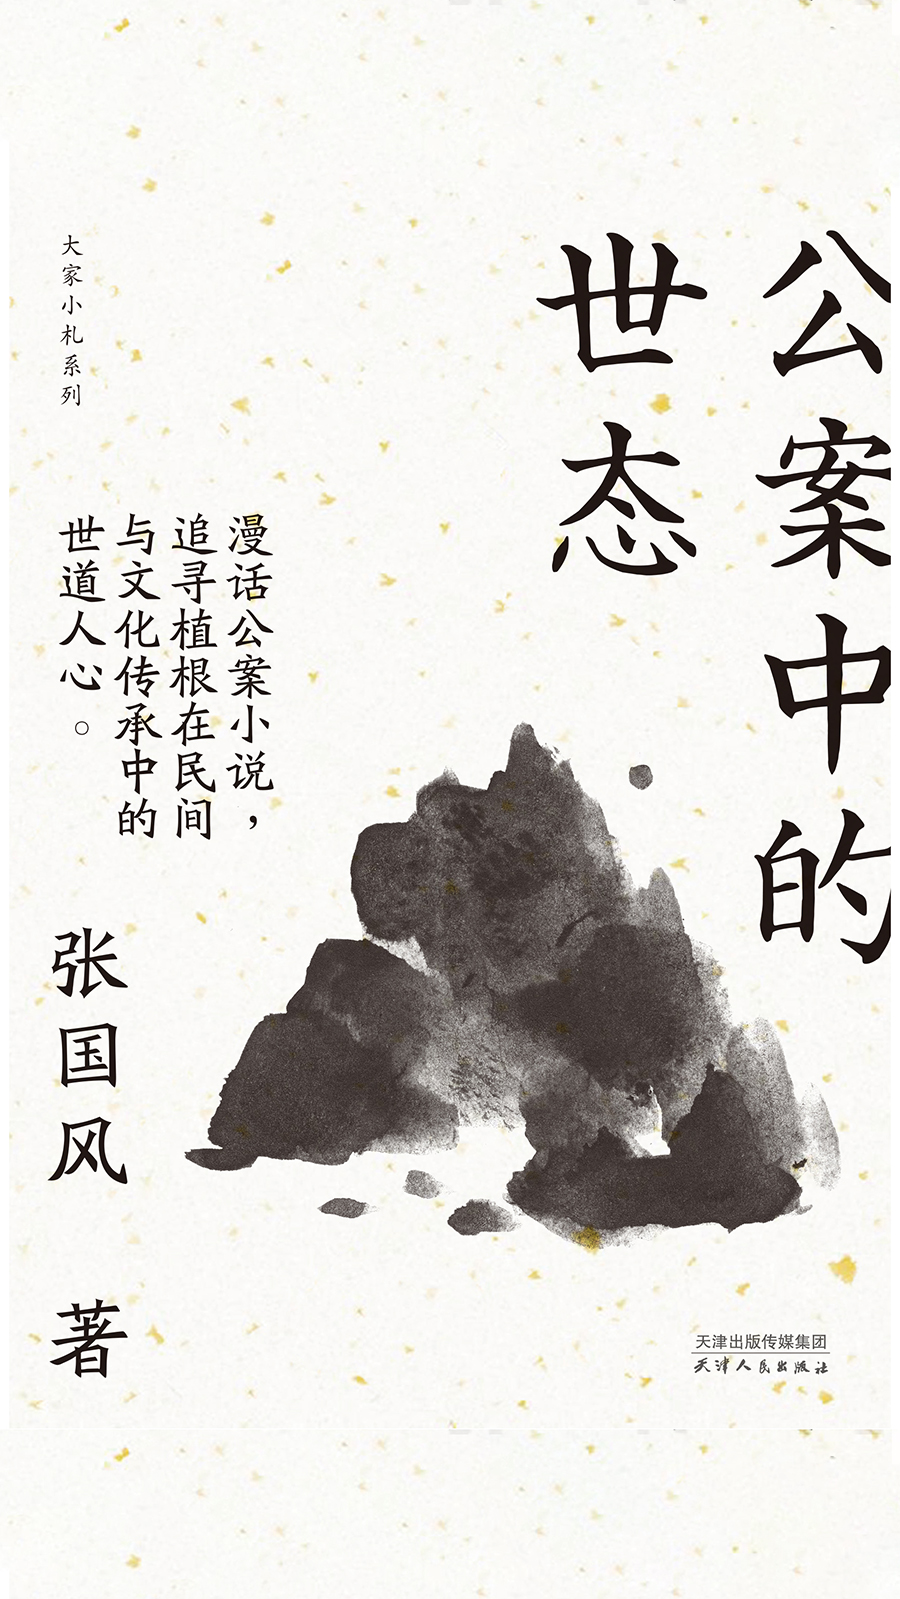 公案中的
世态
大家小札系列
漫话公案小说，
追寻植根在民间
与文化传承中的
世道人心。
张国风 著
天津出版传媒集团
天津人民出版社